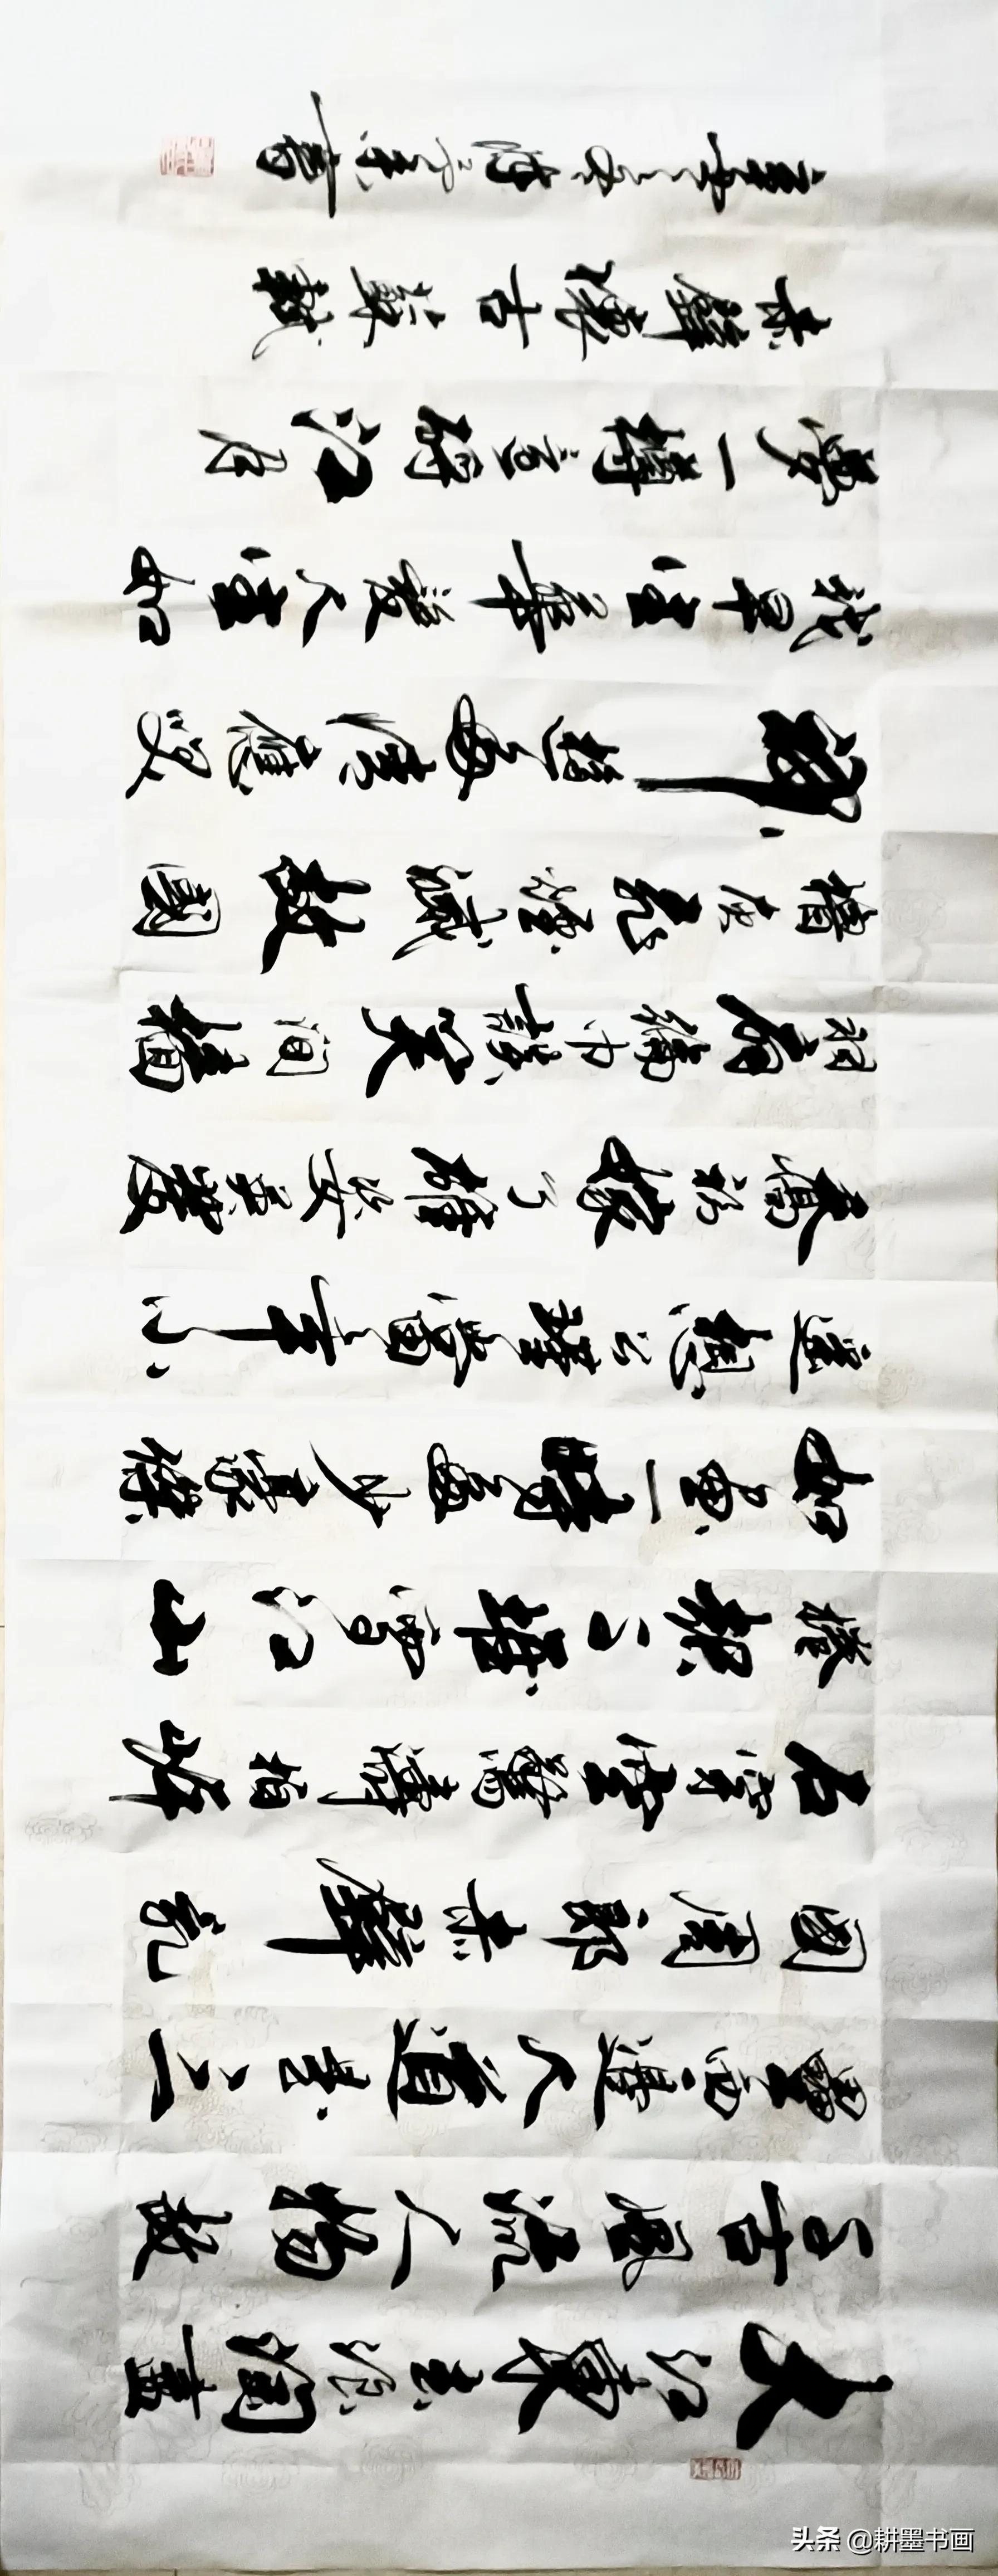 大江東去浪淘盡
千古風流人物故
壘西邊人道是三
國周郎赤壁亂
石穿空驚濤拍岸
捲起千堆雪江山
如畫一時多少豪傑
遥想公瑾當年小
喬初嫁了雄姿英發
羽扇綸巾談笑間檣
櫓灰飛煙滅故國
神遊多情應笑
我早生華髮人生如
夢一樽還酹江月
赤壁懷古蘇軾
書
头条 @耕墨书画